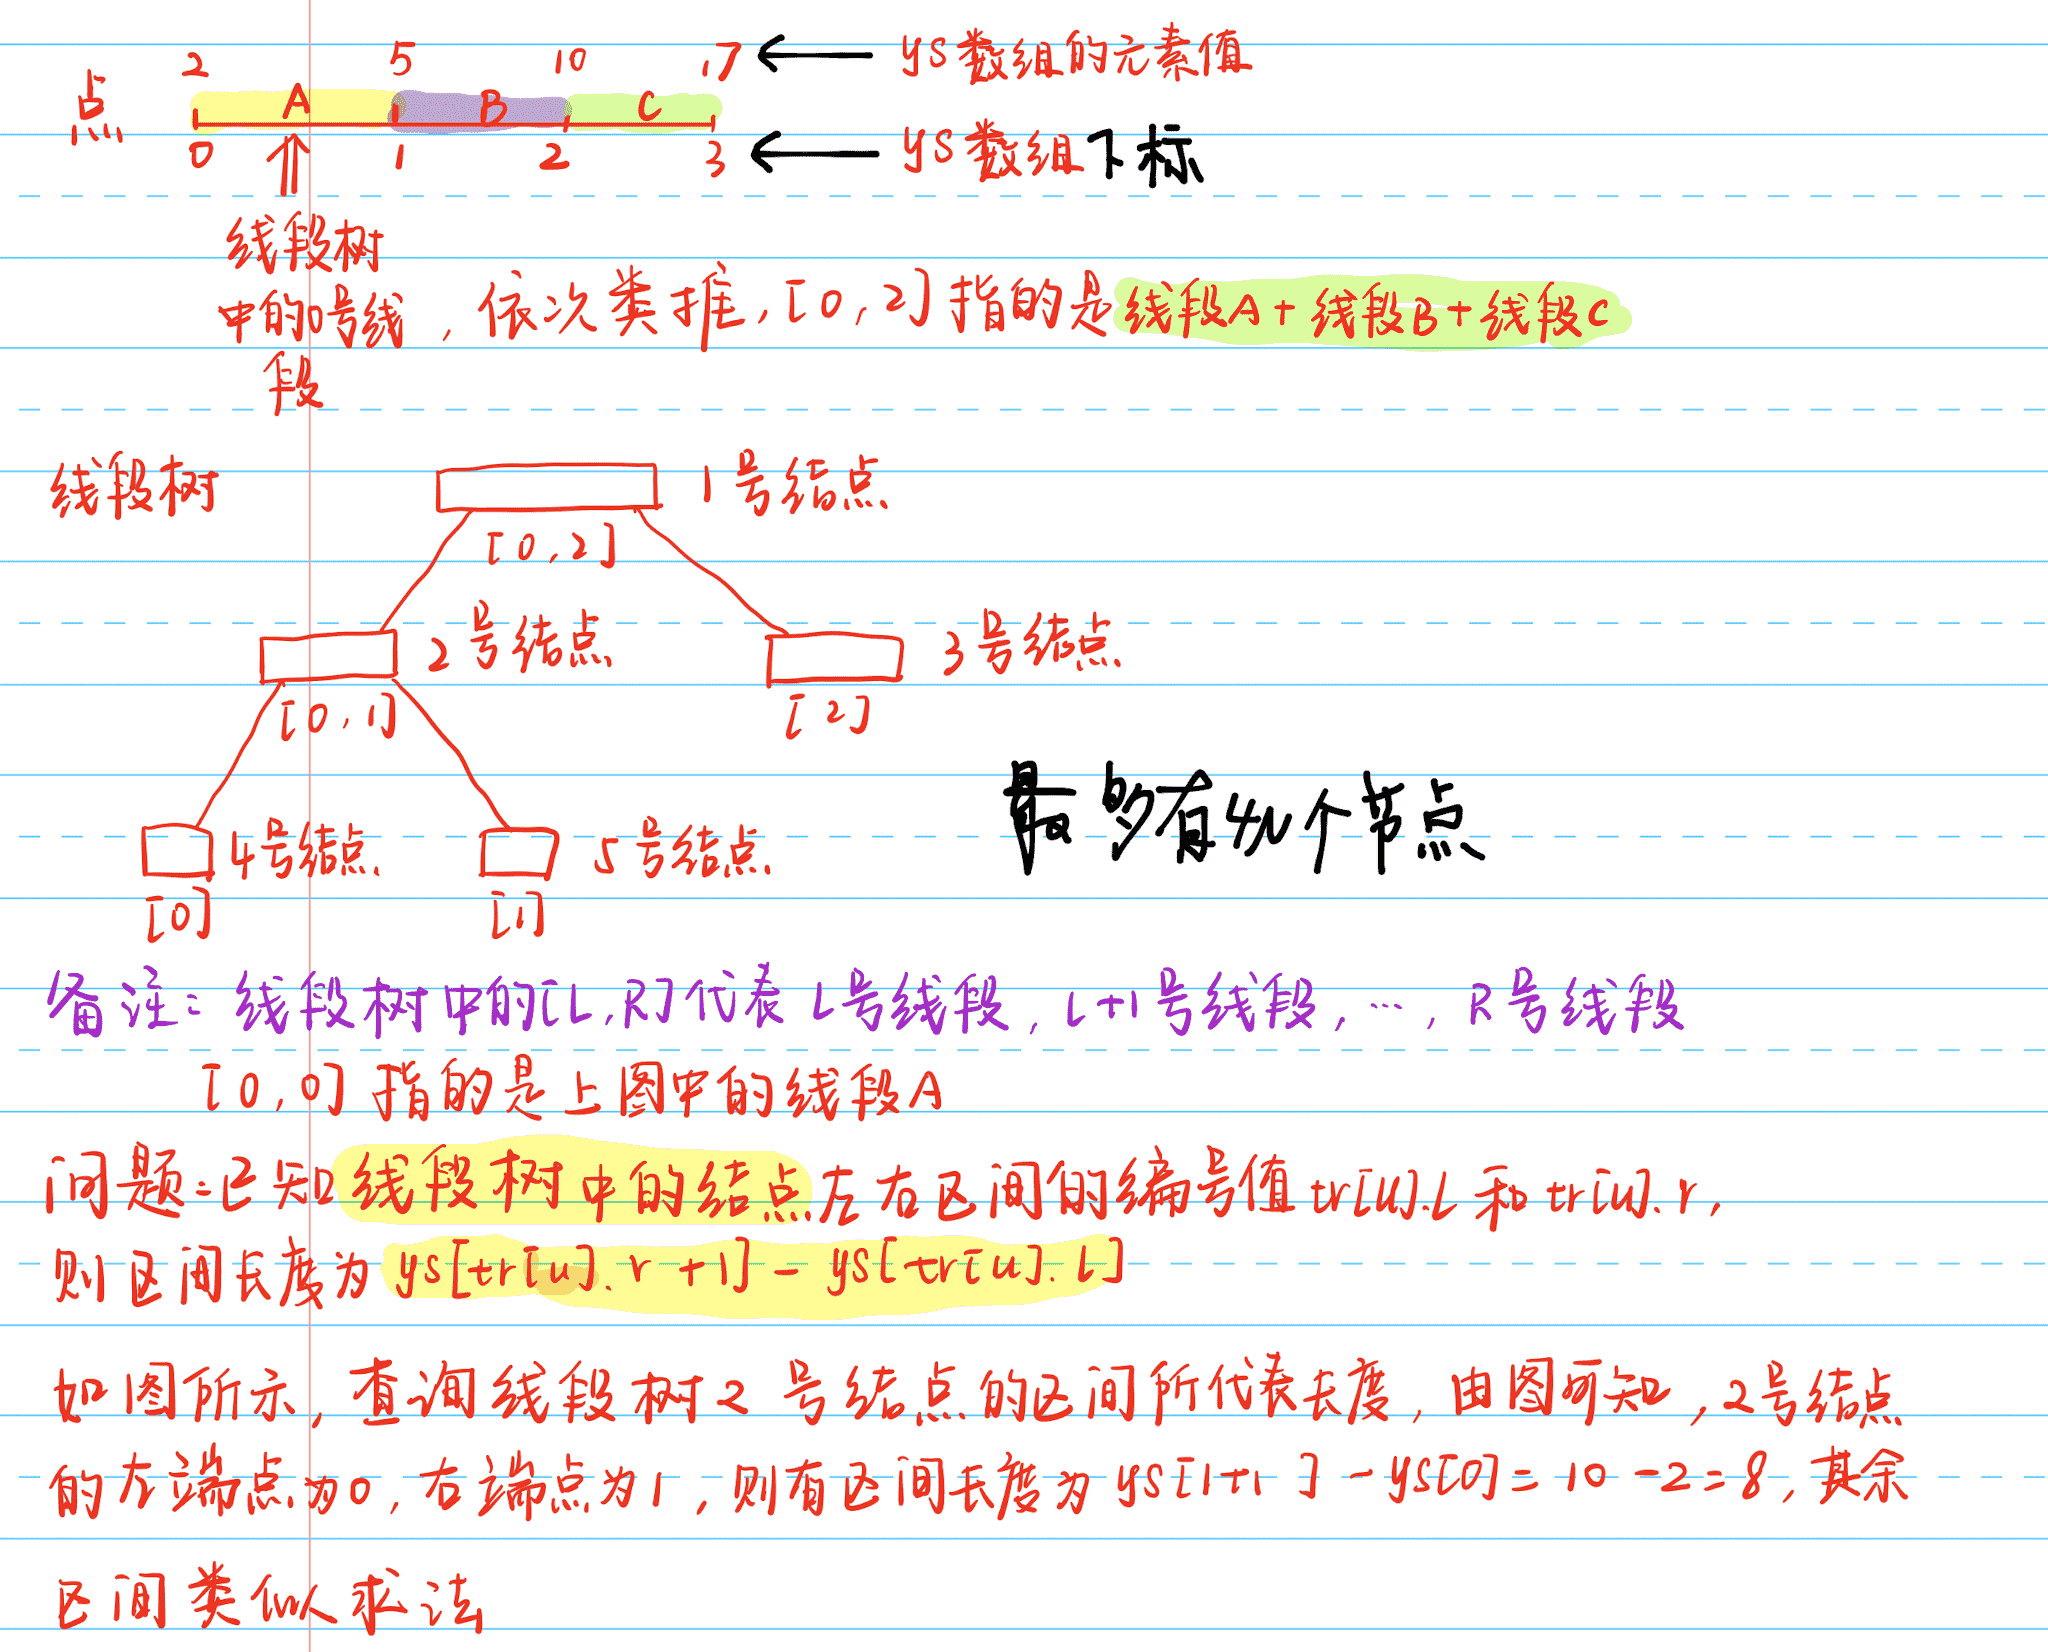 2 5 10 17 ← ys数组的元素值
点 A B C
0 1 2 3 ← ys数组下标
线段树
中的0号线段，依次类推，[0,2]指的是线段A+线段B+线段C
线段树 1号结点
[0,2]
2号结点 3号结点
[0,1] [2]
最多有4N个节点
4号结点 5号结点
[0] [1]
备注：线段树中的[L,R]代表L号线段，L+1号线段，…，R号线段
[0,0]指的是上图中的线段A
问题：已知线段树中的结点左右区间的编号值tr[u].L和tr[u].r，
则区间长度为ys[tr[u].r+1]-ys[tr[u].L]
如图所示，查询线段树2号结点的区间所代表长度，由图可知，2号结点
的左端点为0，右端点为1，则有区间长度为ys[1+1]-ys[0]=10-2=8，其余
区间类似求法